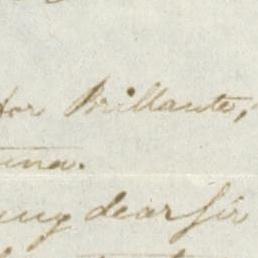 for Brillante,
una.
my dear Sir